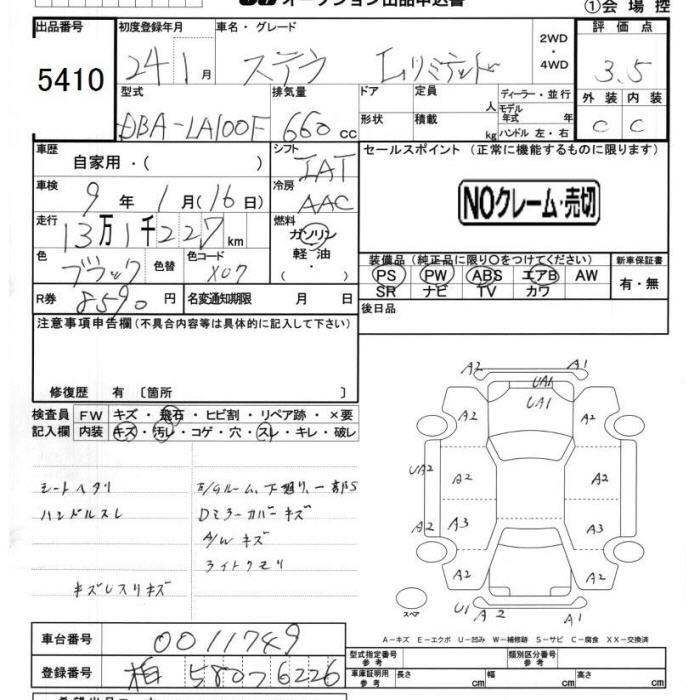 オークション出品申込書
①会場控
出品番号
5410
初度登録年月
24 1月
車名・グレード
ステラ Lリミテッド
2WD
・
4WD
評価点
3.5
型式
DBA-LA100F
排気量
660 cc
ドア
形状
定員 人
積載 kg
ディーラー・並行
モデル年式 年
ハンドル 左・右
外装 内装
C C
車歴
自家用・( )
シフト
IAT
セールスポイント (正常に機能するものに限ります)
NOクレーム・売切
車検
9年 1月(16日)
冷房
AAC
走行
13万1千227km
燃料
ガソリン
軽油
・( )
色
ブラック
色替
色コード
X07
装備品(純正品に限り○をつけてください)
PS PW ABS エアB AW
SR ナビ TV カワ
新車保証書
有・無
R券
8590円
名変通知期限 月 日
後日品
注意事項申告欄(不具合内容等は具体的に記入して下さい)
修復歴 有 〔箇所 〕
検査員
記入欄
FW キズ・飛石・ヒビ割・リペア跡・×要
内装 キズ・汚レ・コゲ・穴・スレ・キレ・破レ
シートヘタリ
ハンドルスレ
キズレスリキズ
E/Gルーム、下廻り、一部S
Dミラーカバーキズ
A/Wキズ
ライトクモリ
A2 A1
UA1
A2 UA1 A2
UA2 A2 A2
A2 A3 A3
A2 A2
スペア
U1 A2 A1
A-キズ E-エクボ U-凹み W-補修跡 S-サビ C-腐食 XX-交換済
車台番号
0011749
登録番号
柏 580 つ 6226
型式指定番号
参考
類別区分番号
参考
車庫証明用
参考
長さ cm
幅 cm
高さ cm